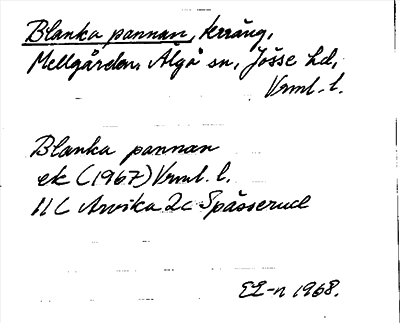 Blanka pannan, terräng,
Mellgården, Älgå sn, Jösse hd,
Vrml. l.
Blanka pannan
ek (1967) Vrml. l.
11C Arvika 2c Spässerud
EL-n 1968.